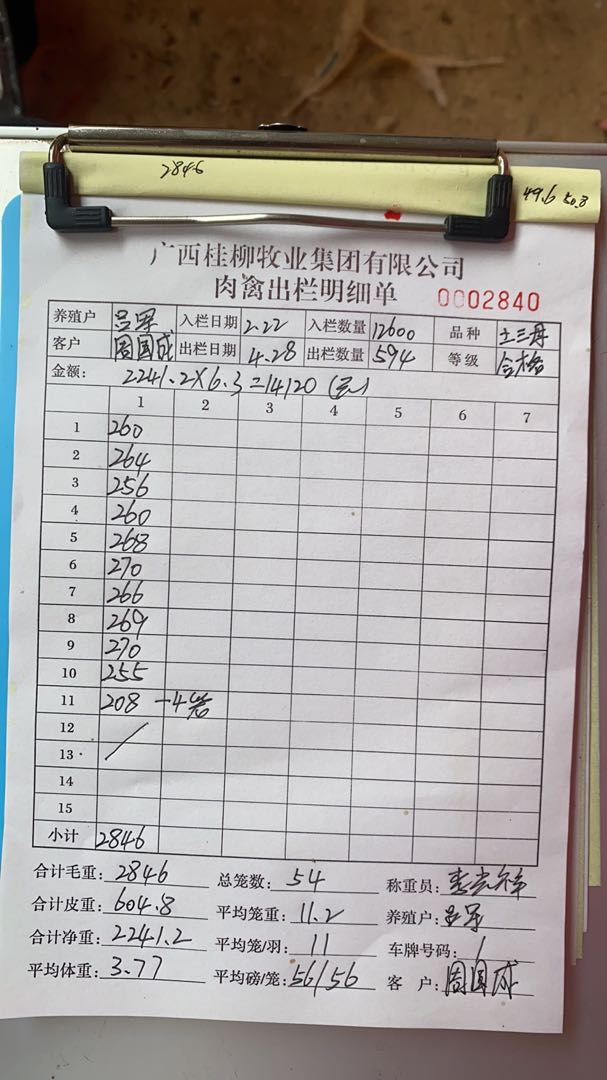 2846
49.6 50.8
广西桂柳牧业集团有限公司
肉禽出栏明细单 0002840
养殖户 吕军 入栏日期 2.22 入栏数量 12600 品种 土三丹
客户 周国成 出栏日期 4.28 出栏数量 594 等级 合格
金额: 2241.2×6.3=14120(元)
1 2 3 4 5 6 7
1 260
2 264
3 256
4 260
5 268
6 270
7 266
8 269
9 270
10 255
11 208 -4笼
12
13
14
15
小计 2846
合计毛重: 2846 总笼数: 54 称重员:
合计皮重: 604.8 平均笼重: 11.2 养殖户: 吕军
合计净重: 2241.2 平均笼/羽: 11 车牌号码: /
平均体重: 3.77 平均磅/笼: 56/56 客 户: 周国成